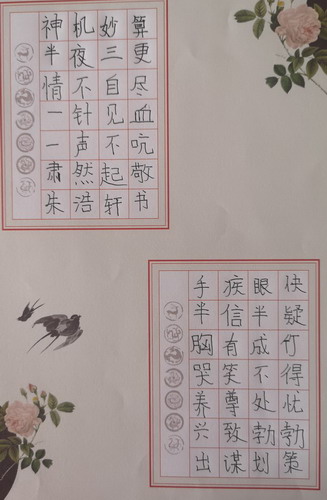 神机妙算
半夜三更
情不自尽
一针见血
一声不吭
肃然起敬
朱浩轩书
手疾眼快
半信半疑
胸有成竹
哭笑不得
养尊处忧
兴致勃勃
出谋划策